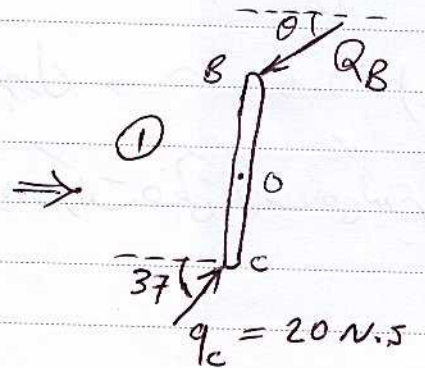 θ
B
Q_B
①
⇒
O
37
C
q_c = 20 N.s